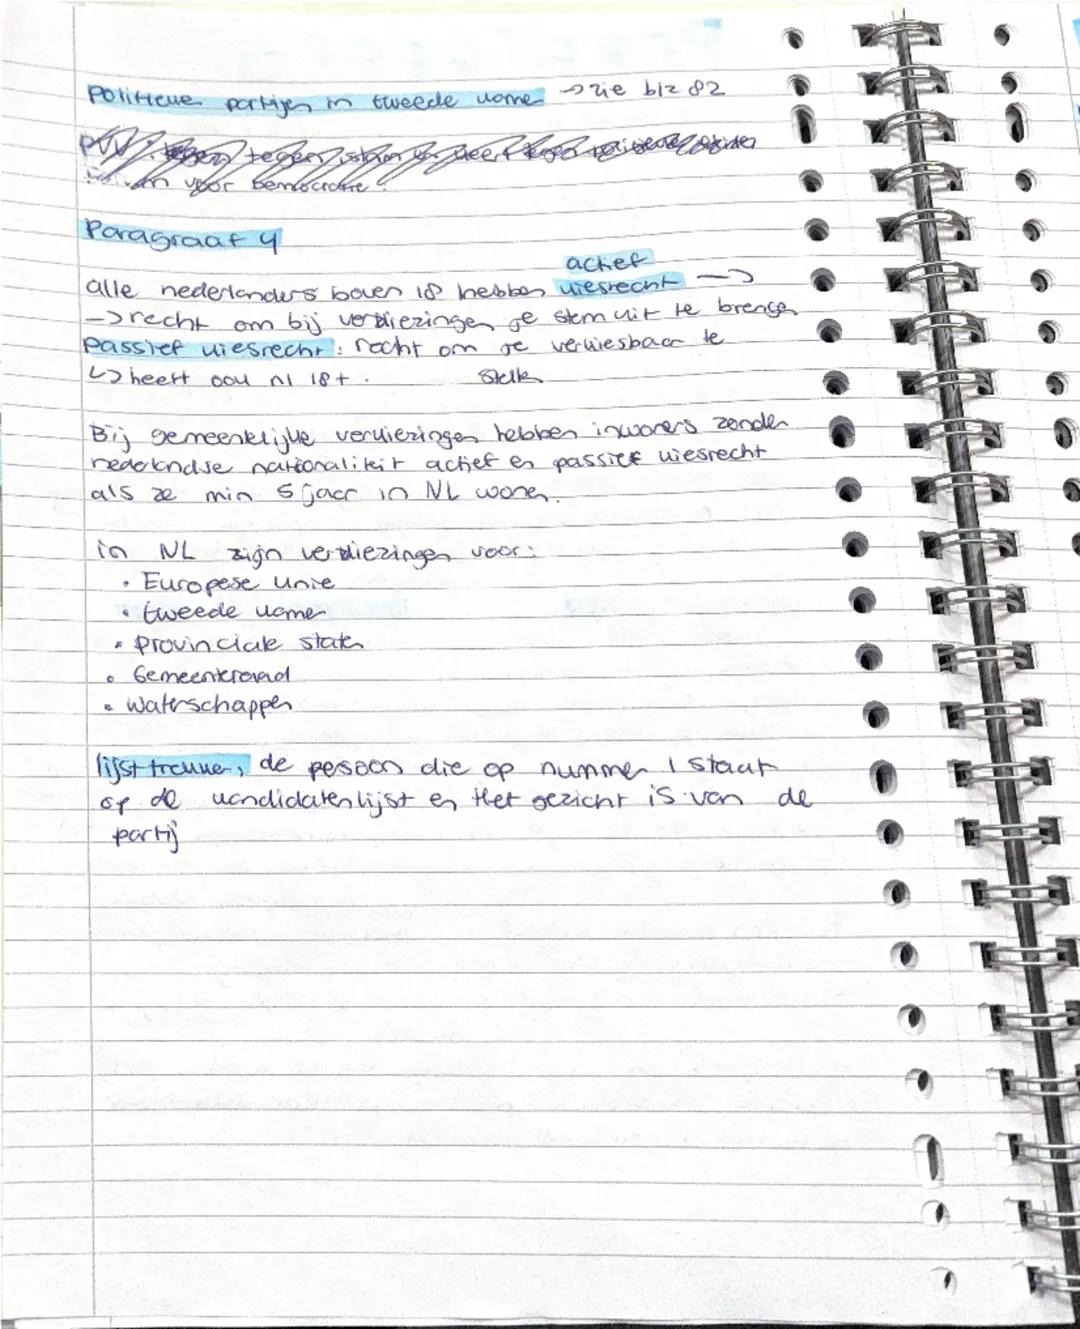 Politieke partijen in tweede kamer → zie blz 82
voor democratie
Paragraaf 4
actief
alle nederlanders boven 18 hebben kiesrecht →
→ recht om bij verkiezingen je stem uit te brengen
Passief kiesrecht: recht om je verkiesbaar te
stellen
↳ heeft ook nl 18+.
Bij gemeentelijke verkiezingen hebben inwoners zonder
nederlandse nationaliteit actief en passief kiesrecht
als ze min 5 jaar in NL wonen.
in NL zijn verkiezingen voor:
• Europese unie
• tweede kamer
• Provinciale staten
• Gemeenteraad
• Waterschappen
lijsttrekker, de persoon die op nummer 1 staat
op de kandidatenlijst en Het gezicht is van de
partij